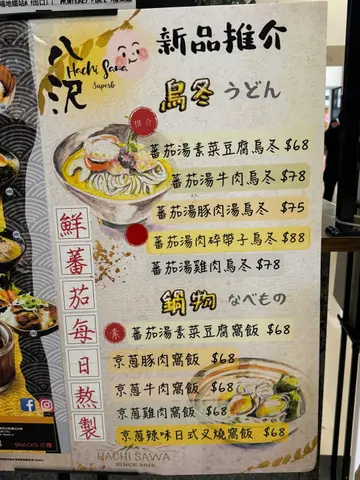 八沢
Hachi Sawa
Superb
新品推介
烏冬 うどん
推介
蕃茄湯素菜豆腐烏冬 $68
蕃茄湯牛肉烏冬 $78
蕃茄湯豚肉湯烏冬 $75
蕃茄湯肉碎帶子烏冬 $88
蕃茄湯雞肉烏冬 $78
鍋物 なべもの
素 蕃茄湯素菜豆腐窩飯 $68
京蔥豚肉窩飯 $68
京蔥牛肉窩飯 $68
京蔥雞肉窩飯 $68
京蔥辣味日式叉燒窩飯 $68
鮮蕃茄每日熬製
HACHI SAWA
SINCE 2015
SNACKS